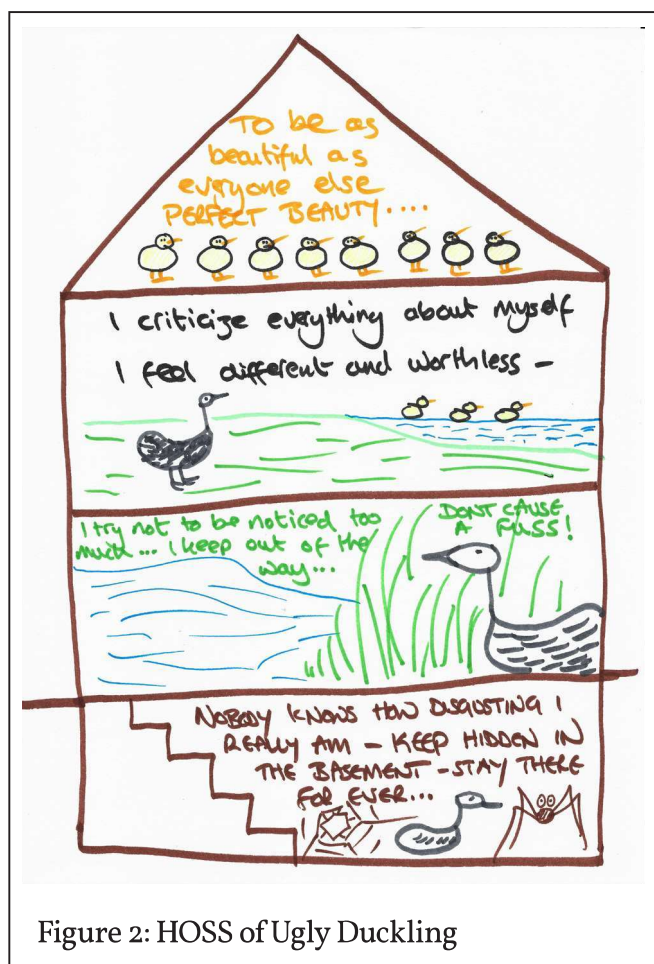 To be as
beautiful as
everyone else
PERFECT BEAUTY....
I criticize everything about myself
I feel different and worthless –
I try not to be noticed too
much... I keep out of the
way...
DONT CAUSE
A FUSS!
NOBODY KNOWS HOW DISGUSTING I
REALLY AM – KEEP HIDDEN IN
THE BASEMENT – STAY THERE
FOR EVER...
Figure 2: HOSS of Ugly Duckling